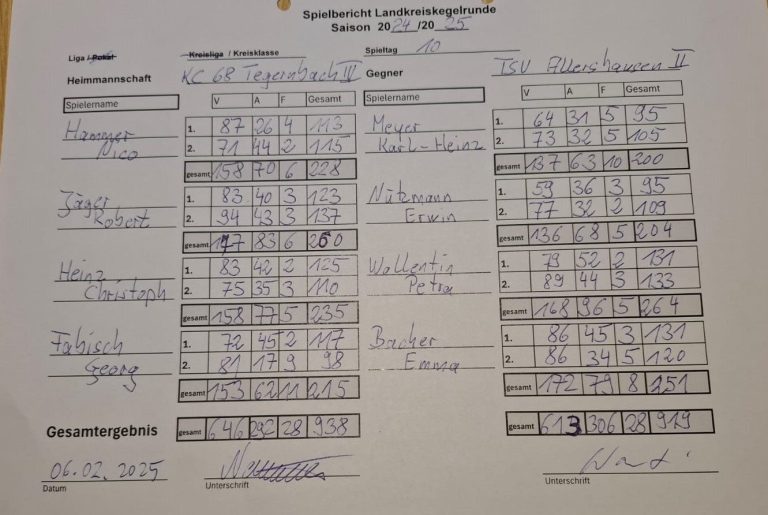 Spielbericht Landkreiskegelrunde
Saison 2024/2025
Liga / Pokal Kreisliga / Kreisklasse Spieltag 10
Heimmannschaft KC 68 Tegernbach IV Gegner TSV Allershausen II
Spielername V A F Gesamt Spielername V A F Gesamt
Hammer 1. 87 26 4 113 Meyer 1. 64 31 5 95
Nico 2. 71 44 2 115 Karl-Heinz 2. 73 32 5 105
gesamt 158 70 6 228 gesamt 137 63 10 200
Jäger 1. 83 40 3 123 Nützmann 1. 59 36 3 95
Robert 2. 94 43 3 137 Erwin 2. 77 32 2 109
gesamt 177 83 6 260 gesamt 136 68 5 204
Heinz 1. 83 42 2 125 Wallentin 1. 79 52 2 131
Christoph 2. 75 35 3 110 Petra 2. 89 44 3 133
gesamt 158 77 5 235 gesamt 168 96 5 264
Fabisch 1. 72 45 2 117 Bacher 1. 86 45 3 131
Georg 2. 81 17 9 98 Emma 2. 86 34 5 120
gesamt 153 62 11 215 gesamt 172 79 8 251
Gesamtergebnis gesamt 646 292 28 938 gesamt 613 306 28 919
06.02.2025
Datum Unterschrift Unterschrift